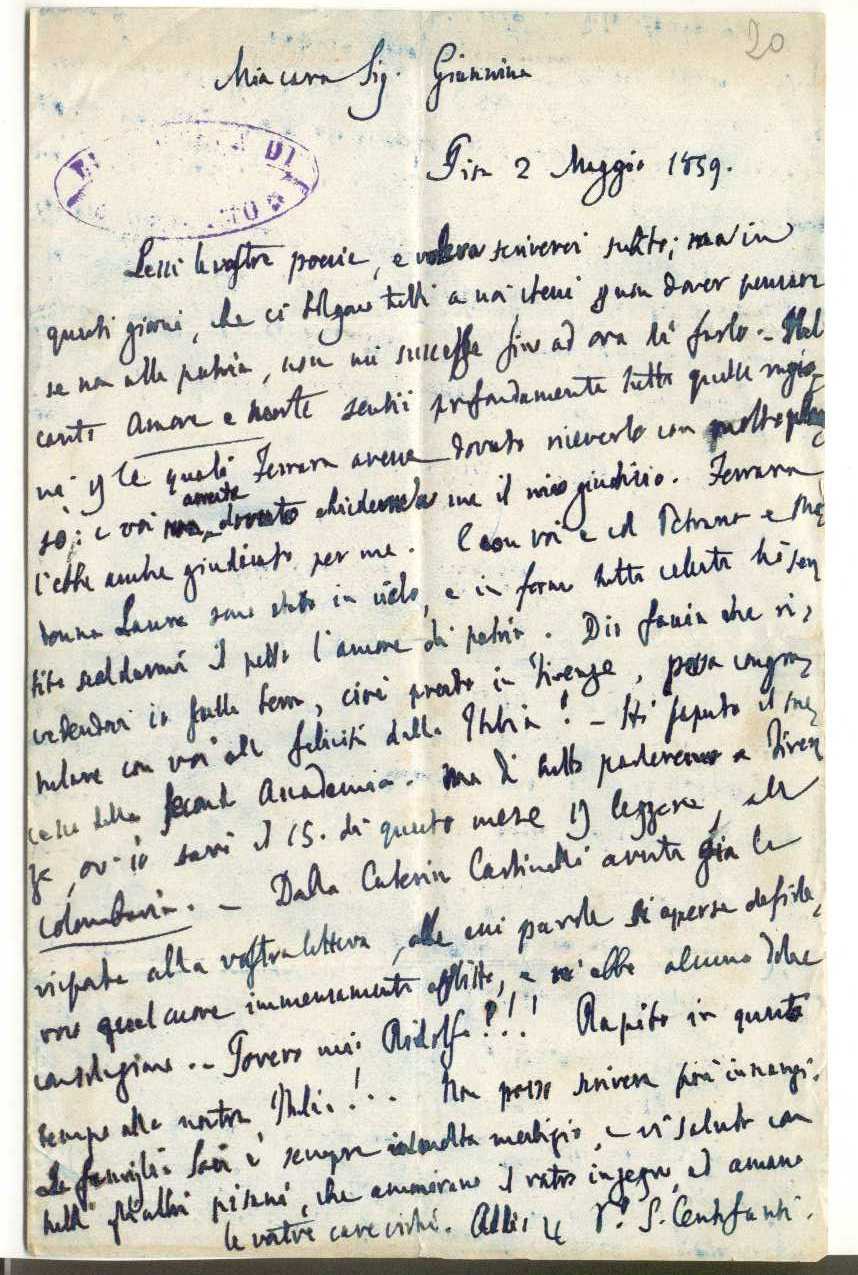 20
Mia cara Sig. Giannina
Pisa 2 Maggio 1859.
Lessi le vostre poesie, e voleva scrivervi subito; ma in
questi giorni, che ci tolgono tutti a noi stessi per non dover pensare
se non alla patria, non mi successe fino ad ora di farlo. – Nel
canto Amore e morte sentii profondamente tutte quelle ragio-
ni per le quali Ferrara avesse dovuto riceverlo con molto plau
so; e voi avreste dovuto chiedere a me il mio giudizio. Ferrara
l'ebbe anche giudicato per me. E con voi e col Petrarca e Ma
donna Laura sono stato in cielo, e in forma tutta celeste ho sen
tito scaldarmi il petto l'amore di patria. Dio faccia che ri-
vedendovi in sulla terra, cioè presto in Firenze, possa congra-
tulare con voi alla felicità della Italia! – Ho saputo il suc-
cesso della seconda Accademia. Ma di tutto parleremo a Firen
ze, ov'io sarò il 15. di questo mese per leggere, alla
Colombaria. – Dalla Caterina Castinelli avrete già la
risposta alla vostra lettera, alle cui parole si aperse
quel cuore immensamente afflitto, e n'ebbe alcuna dolce
consolazione. – Povero mio Ridolfo!!! Rapito in questo
tempo alla nostra Italia!.. Non posso scriver più innanzi.
La famiglia Savi è sempre e vi saluto con
tutti gli altri pisani, che ammirano il vostro ingegno, ed amano
le vostre care virtù. Addio V.° S. Centofanti.
DI